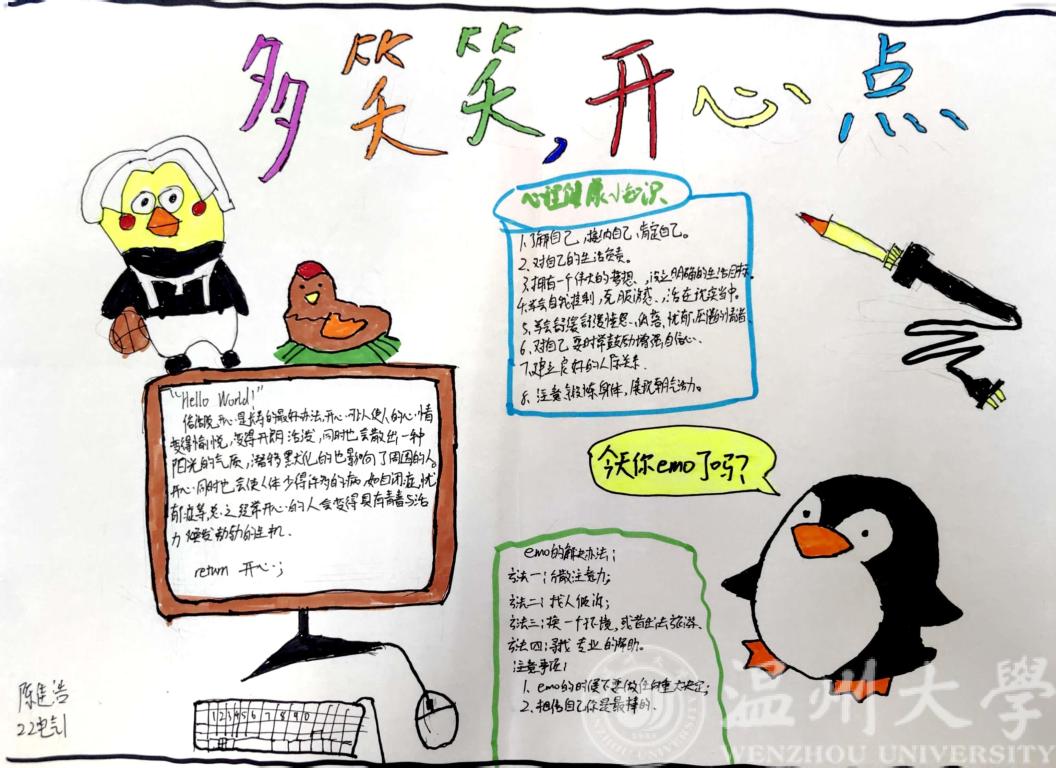 多笑笑,开心点
心理健康小知识
1、了解自己,接纳自己,肯定自己。
2、对自己的生活负责。
3、拥有一个伟大的梦想、设立明确的生活目标。
4、学会自我控制,克服诱惑、活在现实当中。
5、学会舒缓愤怒、低落、忧郁、压抑的情者
6、对自己要时常鼓励增强自信心.
7、建立良好的人际关系.
8、注意锻炼身体,展现朝气活力。
"Hello World!"
俗话说开心是长寿的最好办法,开心引人使人的心情
变得愉悦,变得开朗活泼,同时也会散出一种
阳光的气质,潜移默化的也影响了周围的人。
开心同时也会使人体少得许多的病,如自闭症,忧
郁症等,总之超常开心的人会变得具有青春与活
力 焕发勃勃的生机.
return 开心;
今天你emo了吗?
emo的解决办法;
方法一;分散注意力;
方法二;找人倾诉;
方法三;换一个环境,或者出去旅游.
方法四;寻找专业的帮助。
注意事项:
1、emo的时候不要做任何重大决定;
2、相信自己你是最棒的.
1 2 3 4 5 6 7 8 9 0
陈进浩
22电气1
温州大學
WENZHOU UNIVERSITY